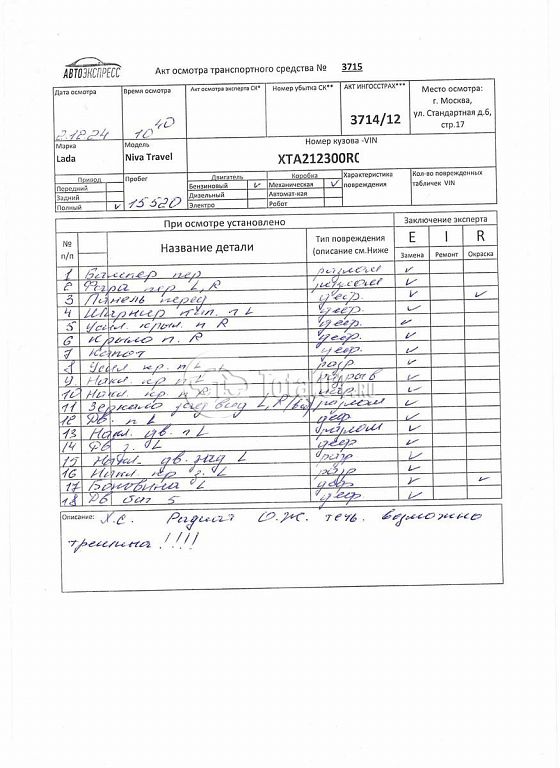 АВТОЭКСПРЕСС
Акт осмотра транспортного средства № 3715
Дата осмотра
2.12.24
Время осмотра
10 40
Акт осмотра эксперта СК*
Номер убытка СК**
АКТ ИНГОССТРАХ***
3714/12
Место осмотра:
г. Москва,
ул. Стандартная д.6,
стр.17
Марка
Lada
Модель
Niva Travel
Номер кузова -VIN
XTA212300R
Привод
Передний
Задний
Полный v
Пробег
15520
Двигатель
Бензиновый v
Дизельный
Электро
Коробка
Механическая v
Автомат-кая
Робот
Характеристика
повреждения
Кол-во поврежденных
табличек VIN
При осмотре установлено
Заключение эксперта
№
п/п
Название детали
Тип повреждения
(описание см.Ниже
E I R
Замена Ремонт Окраска
1 Бампер пер разлом v
2 Фара пер L, R разлом v
3 Панель перед деф. v v
4 Шарнир кап. п L деф. v
5 Усил. крыл. п R деф. v
6 Крыло п. R деф. v
7 Капот деф. v
8 Усил кр. п L разр v
9 Накл. кр п L разрыв v
10 Накл. кр. п R v
11 Зеркало зад вид L, R разлом v
12 Дв. п L деф v
13 Накл. дв. п L разлом v
14 Дв з. L деф v
15 Накл. дв. зад L разр v
16 Накл кр з. L разр v
17 Боковина L деф v v
18 Дв баг 5 деф v
TotalCar.RU
Описание: Х.С. Радиат О.Ж. течь. возможно
трещина !!!!